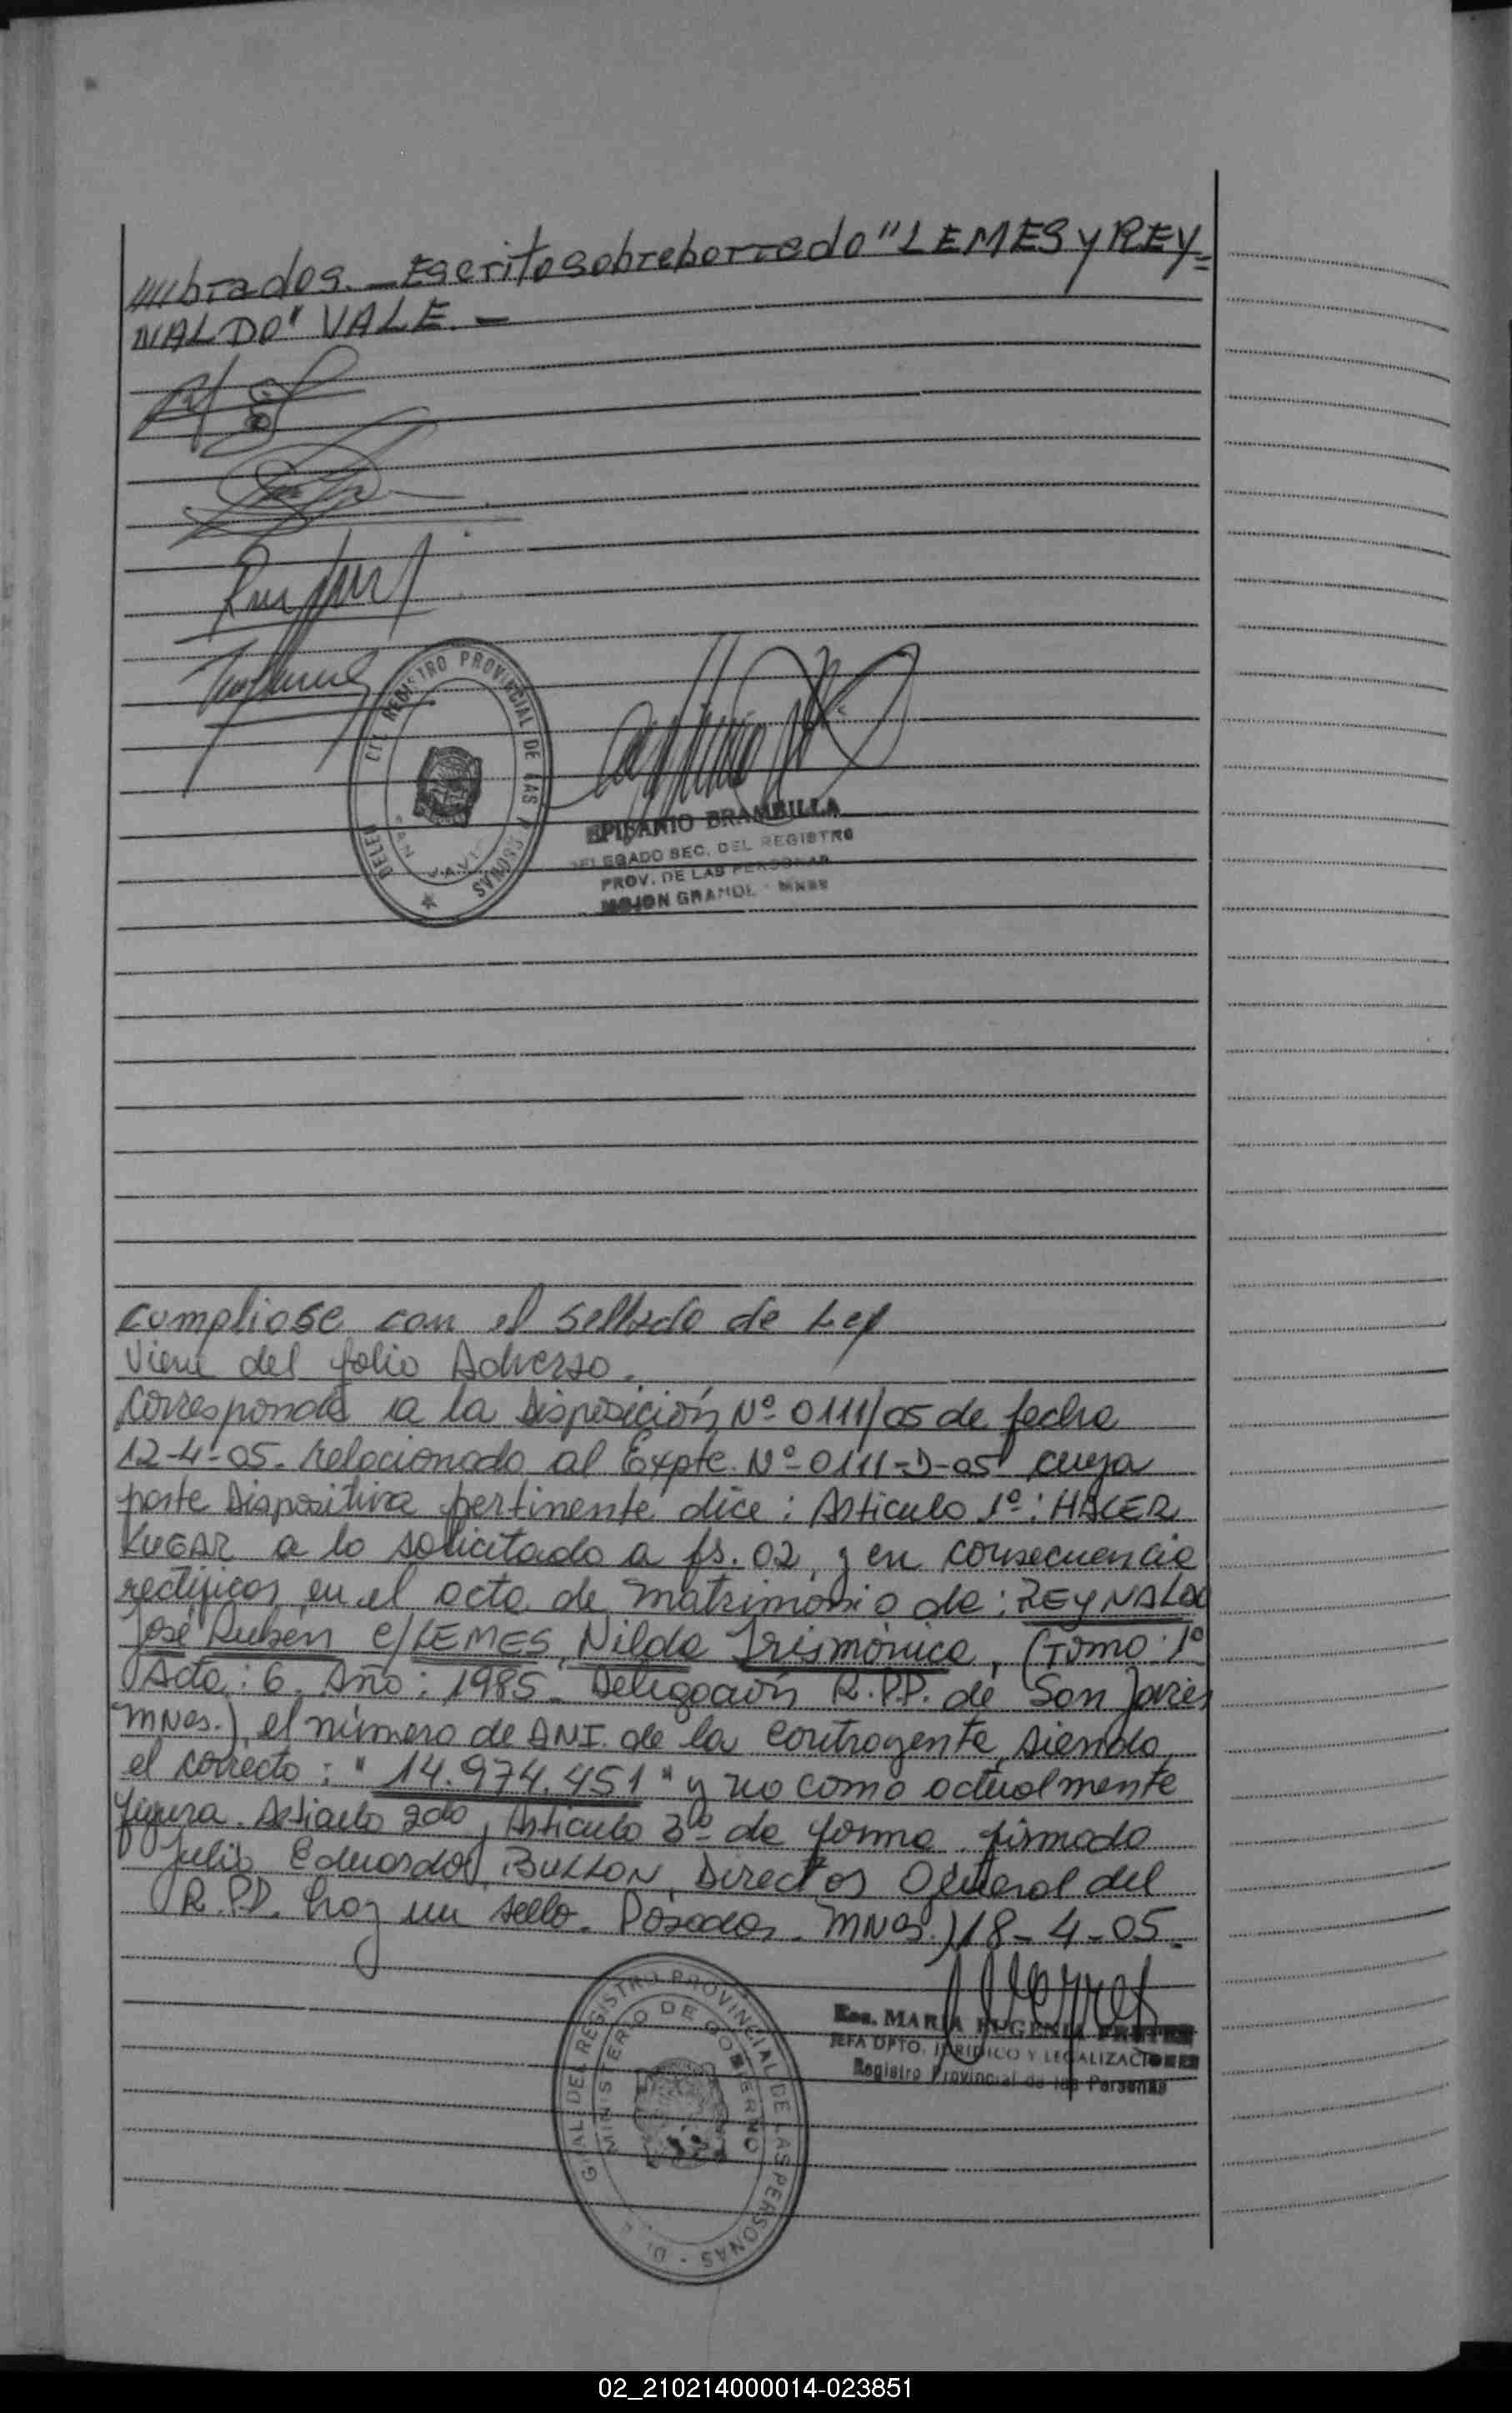 ////brados. _ Escrito sobreborrado "LEMES y REY=
NALDO" VALE. -
REGISTRO PROVINCIAL DE LAS PERSONAS
EPIFANIO BRAMBILLA
DELEGADO SEC. DEL REGISTRO
PROV. DE LAS PERSONAS
MOJON GRANDE - MNES
cumpliose con el sellado de Ley
Viene del folio Adverso.
Corresponde a la Disposición Nº 0111/05 de fecha
12-4-05. relacionado al Expte. Nº 0111-D-05 cuya
parte Dispositiva pertinente dice: Articulo 1º: HACER
LUGAR a lo solicitado a fs. 02, y en consecuencia
rectificar en el acta de matrimonio de: REYNALDO
José Rubén c/LEMES, Nilda Irismónica, (Tomo: 1º
Acta: 6. Año: 1985. Delegación R.P.P. de San Javier
MNes.), el número de DNI. de la contrayente, siendo
el correcto: "14.974.451" y no como actualmente
figura. Articulo 2do, Articulo 3º de forma. firmado
Julio Eduardo BULLON, Director General del
R.P.P. hay un sello. Posadas. MNes.) 18-4-05.
GRAL DEL REGISTRO PROVINCIAL DE LAS PERSONAS
MINISTERIO DE GOBIERNO
Esc. MARIA EUGENIA
JEFA DPTO. JURIDICO Y LEGALIZACIONES
Registro Provincial de las Personas
02_210214000014-023851